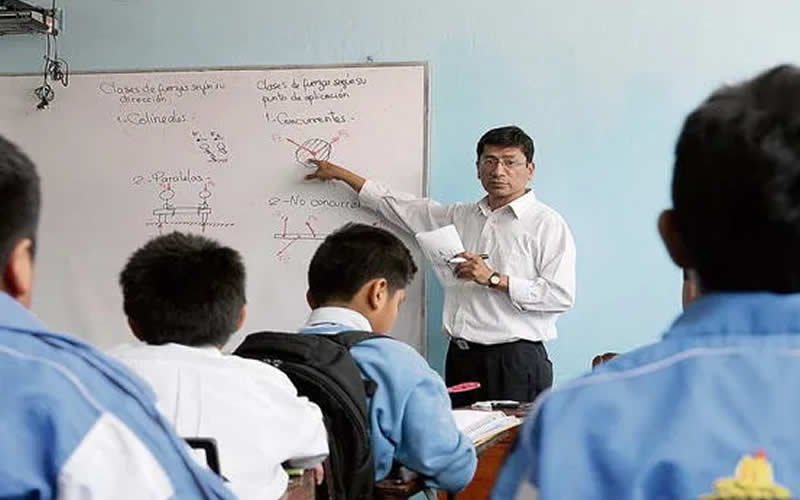 Clases de fuerzas según su
dirección:
1.- Colineales.
2.- Paralelas.-
Clases de fuerzas según su
punto de aplicación
1.- Concurrentes.-
F₂
F₁
2.- No concurren